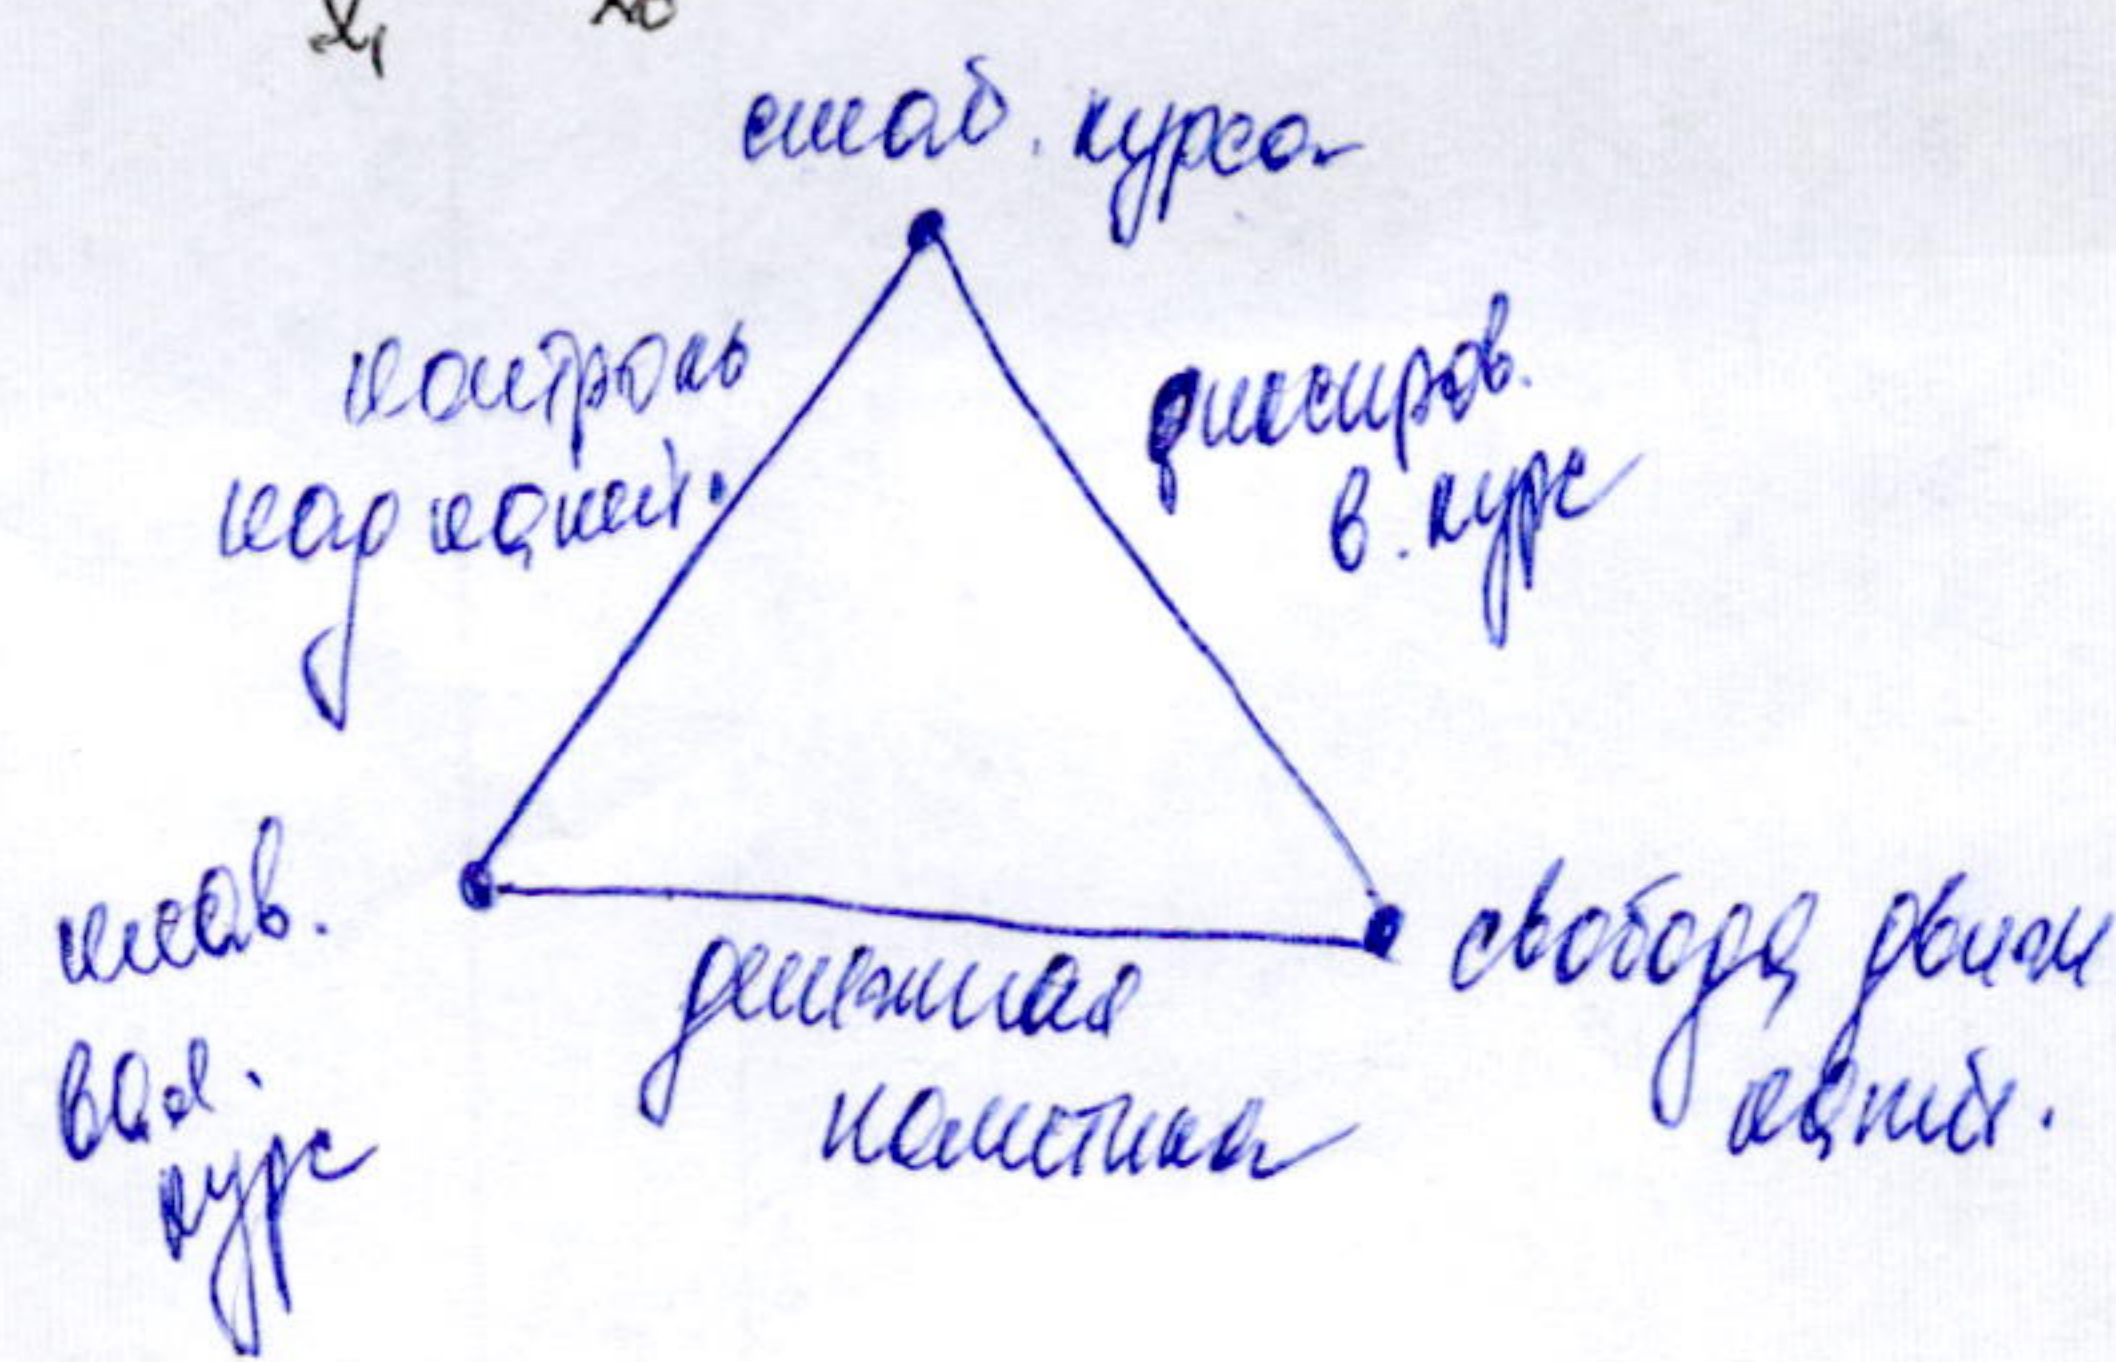 стаб. курса
контроль
над капит.
фиксиров.
в. курс
плав.
вал.
курс
денежная
политика
свобода движ
капит.